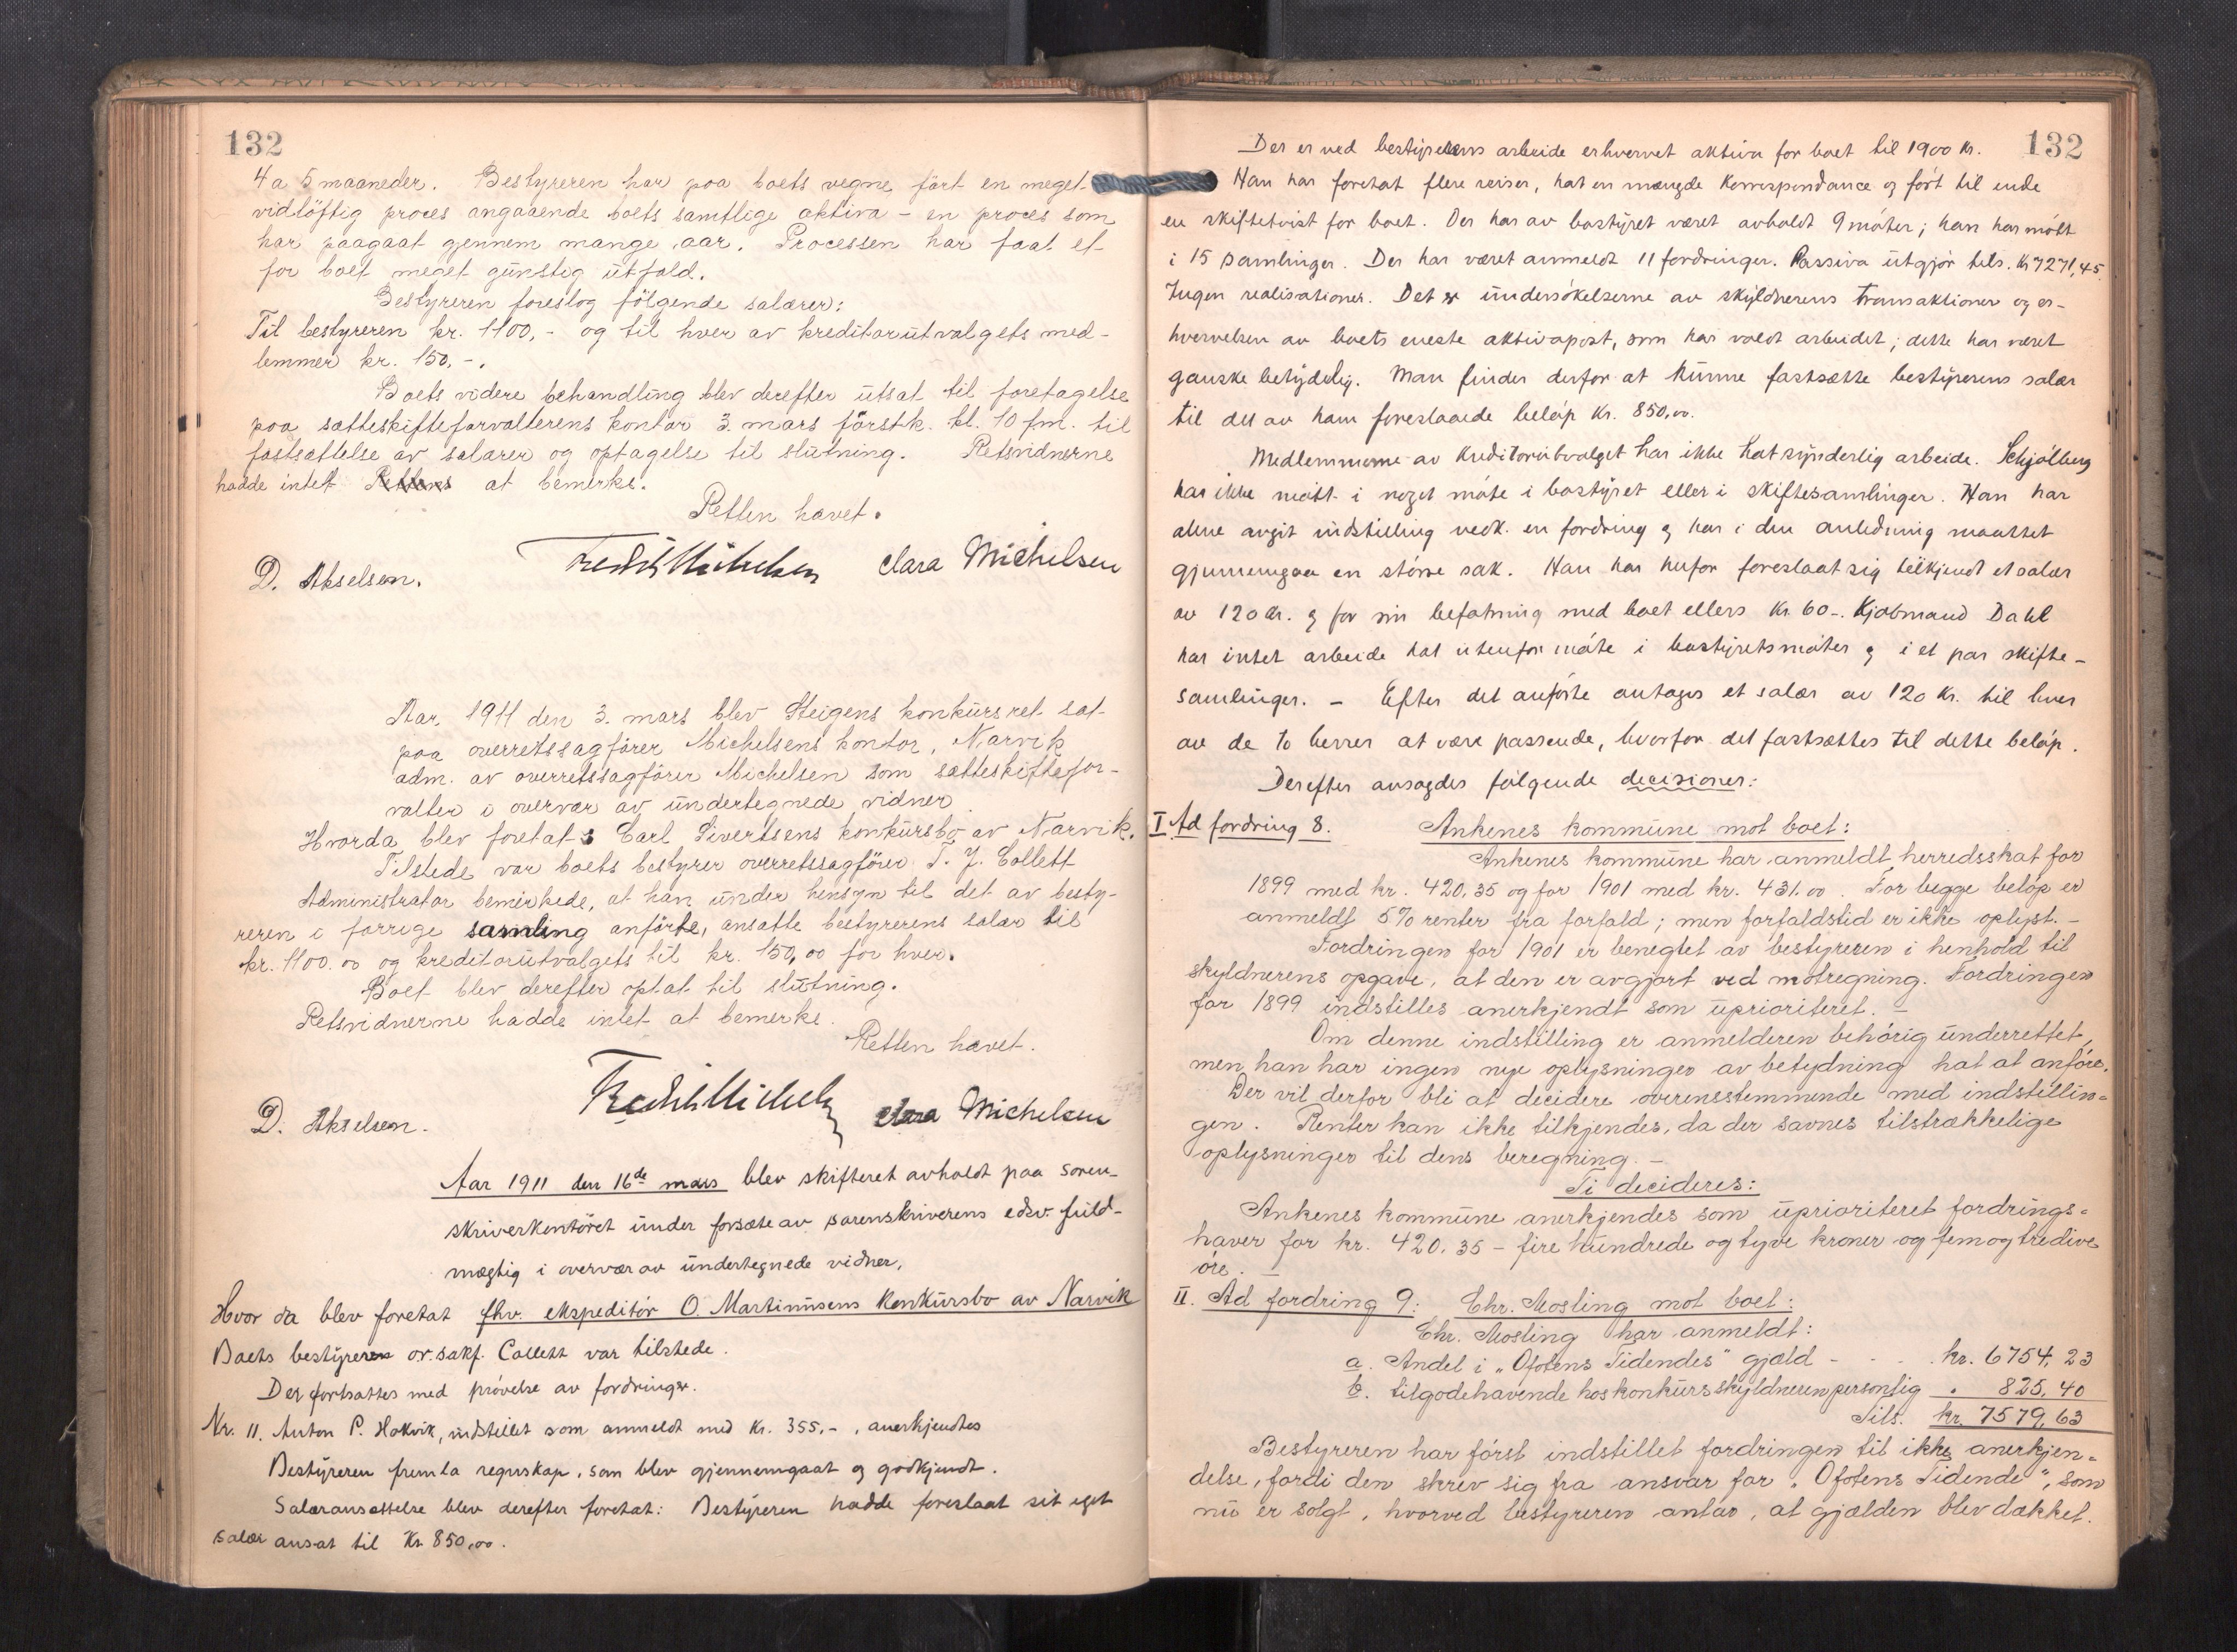 132
4 a 5 maaneder. Bestyreren har paa boets vegne ført en meget
vidløftig proces angaaende boets samtlige aktiva - en proces som
har paagaat gjennem mange aar. Processen har faat et
for boet meget gunstig utfald.
Bestyreren foreslog følgende salærer:
Til bestyreren kr. 1100,- og til hver av kreditorutvalgets med-
lemmer kr. 150,-.
Boets videre behandling blev derefter utsat til foretagelse
paa sætteskifteforvalterens kontor 3. mars førstk. kl. 10 fm. til
fastsættelse av salærer og optagelse til slutning. Retsvidnerne
hadde intet at bemerke.
Retten hævet.
D. Akselsen. Fredrik Michelsen Clara Michelsen
Aar 1911 den 3. mars blev Steigens konkursret sat
paa overretssagfører Michelsens kontor, Narvik
adm. av overretssagfører Michelsen som sætteskiftefor-
valter i overvær av undertegnede vidner.
Hvorda blev foretat Carl Sivertsens konkursbo av Narvik.
Tilstede var boets bestyrer overretssagfører T. J. Collett
Administrator bemerkede, at han under hensyn til det av besty-
reren i forrige samling anførte, ansatte bestyrerens salær til
kr. 1100.00 og kreditorutvalgets til kr. 150,00 for hver.
Boet blev derefter optat til slutning.
Retsvidnerne hadde intet at bemerke.
Retten hævet.
D. Akselsen. Fredrik Michelsen Clara Michelsen
Aar 1911 den 16de mars blev skifteret avholdt paa soren-
skriverkontoret under forsæte av sorenskriverens edsv. fuld-
mægtig i overvær av undertegnede vidner,
Hvor da blev foretat fhv. ekspeditør O. Martinusens konkursbo av Narvik
Boets bestyrer or.sakf. Collett var tilstede.
Der fortsattes med prøvelse av fordringer.
Nr. 11. Anton P. Hokvik, indstillet som anmeldt med Kr. 355.-, anerkjendtes
Bestyreren fremla regnskap, som blev gjennemgaat og godkjendt.
Salæransættelse blev derefter foretat: Bestyreren hadde foreslaat sit eget
salær ansat til Kr. 850,00.
132
Der er ved bestyrelsens arbeide erhvervet aktiva for boet til 1900 Kr.
Han har foretat flere reiser, hat en mængde korrespondance og ført til ende
en skiftetvist for boet. Der har av bostyret været avholdt 9 møter; han har møtt
i 15 samlinger. Der har været anmeldt 11 fordringer. Passiva utgjør tils. Kr 7271,45
Ingen realisationer. Det er undersøkelserne av skyldnerens transaktioner og er-
hvervelsen av boets eneste aktivapost, som har voldt arbeidet; dette har været
ganske betydelig. Man finder derfor at kunne fastsætte bestyrerens salær
til det av ham foreslaaede beløp Kr. 850,00.
Medlemmerne av kreditorutvalget har ikke hat synderlig arbeide. Schjølberg
har ikke møtt i noget møte i bostyret eller i skiftesamlinger. Han har
alene avgit indstilling vedk. en fordring og har i den anledning maattet
gjennemgaa en større sak. Han har herfor foreslaat sig tilkjendt et salær
av 120 kr. og for sin befatning med boet ellers Kr. 60-. Kjøbmand Dahl
har intet arbeide hat utenfor møte i bostyretsmøter og i et par skifte-
samlinger. - Efter det anførte antages et salær av 120 Kr. til hver
av de to herrer at være passende, hvorfor det fastsættes til dette beløp.
Derefter avsagdes følgende decisioner:
I Ad fordring 8. Ankenes kommune mot boet:
Ankenes kommune har anmeldt herredsskat for
1899 med kr. 420.35 og for 1901 med kr. 431.00. For begge beløp er
anmeldt 5% renter fra forfald; men forfaldstid er ikke oplyst. -
Fordringen for 1901 er benegtet av bestyreren i henhold til
skyldnerens opgave, at den er avgjort ved motregning. Fordringen
for 1899 indstilles anerkjendt som uprioriteret. -
Om denne indstilling er anmelderen behørig underrettet,
men han har ingen nye oplysninger av betydning hat at anføre.
Der vil derfor bli at decidere overensstemmende med indstillin-
gen. Renter kan ikke tilkjendes, da der savnes tilstrækkelige
oplysninger til dens beregning. -
Ti decideres:
Ankenes kommune anerkjendes som uprioriteret fordrings-
haver for kr. 420.35 - fire hundrede og tyve kroner og femogtredive
øre. -
II. Ad fordring 9: Chr. Mosling mot boet:
Chr. Mosling har anmeldt:
a. Andel i „Ofotens Tidendes" gjæld - - . kr. 6754,23
b. tilgodehavende hos konkursskyldneren personlig - „ 825,40
Tils. kr. 7579,63
Bestyreren har først indstillet fordringen til ikke anerkjen-
delse, fordi den skrev sig fra ansvar for „Ofotens Tidende", som
nu er solgt, hvorved bestyreren antar, at gjælden blev dækket.